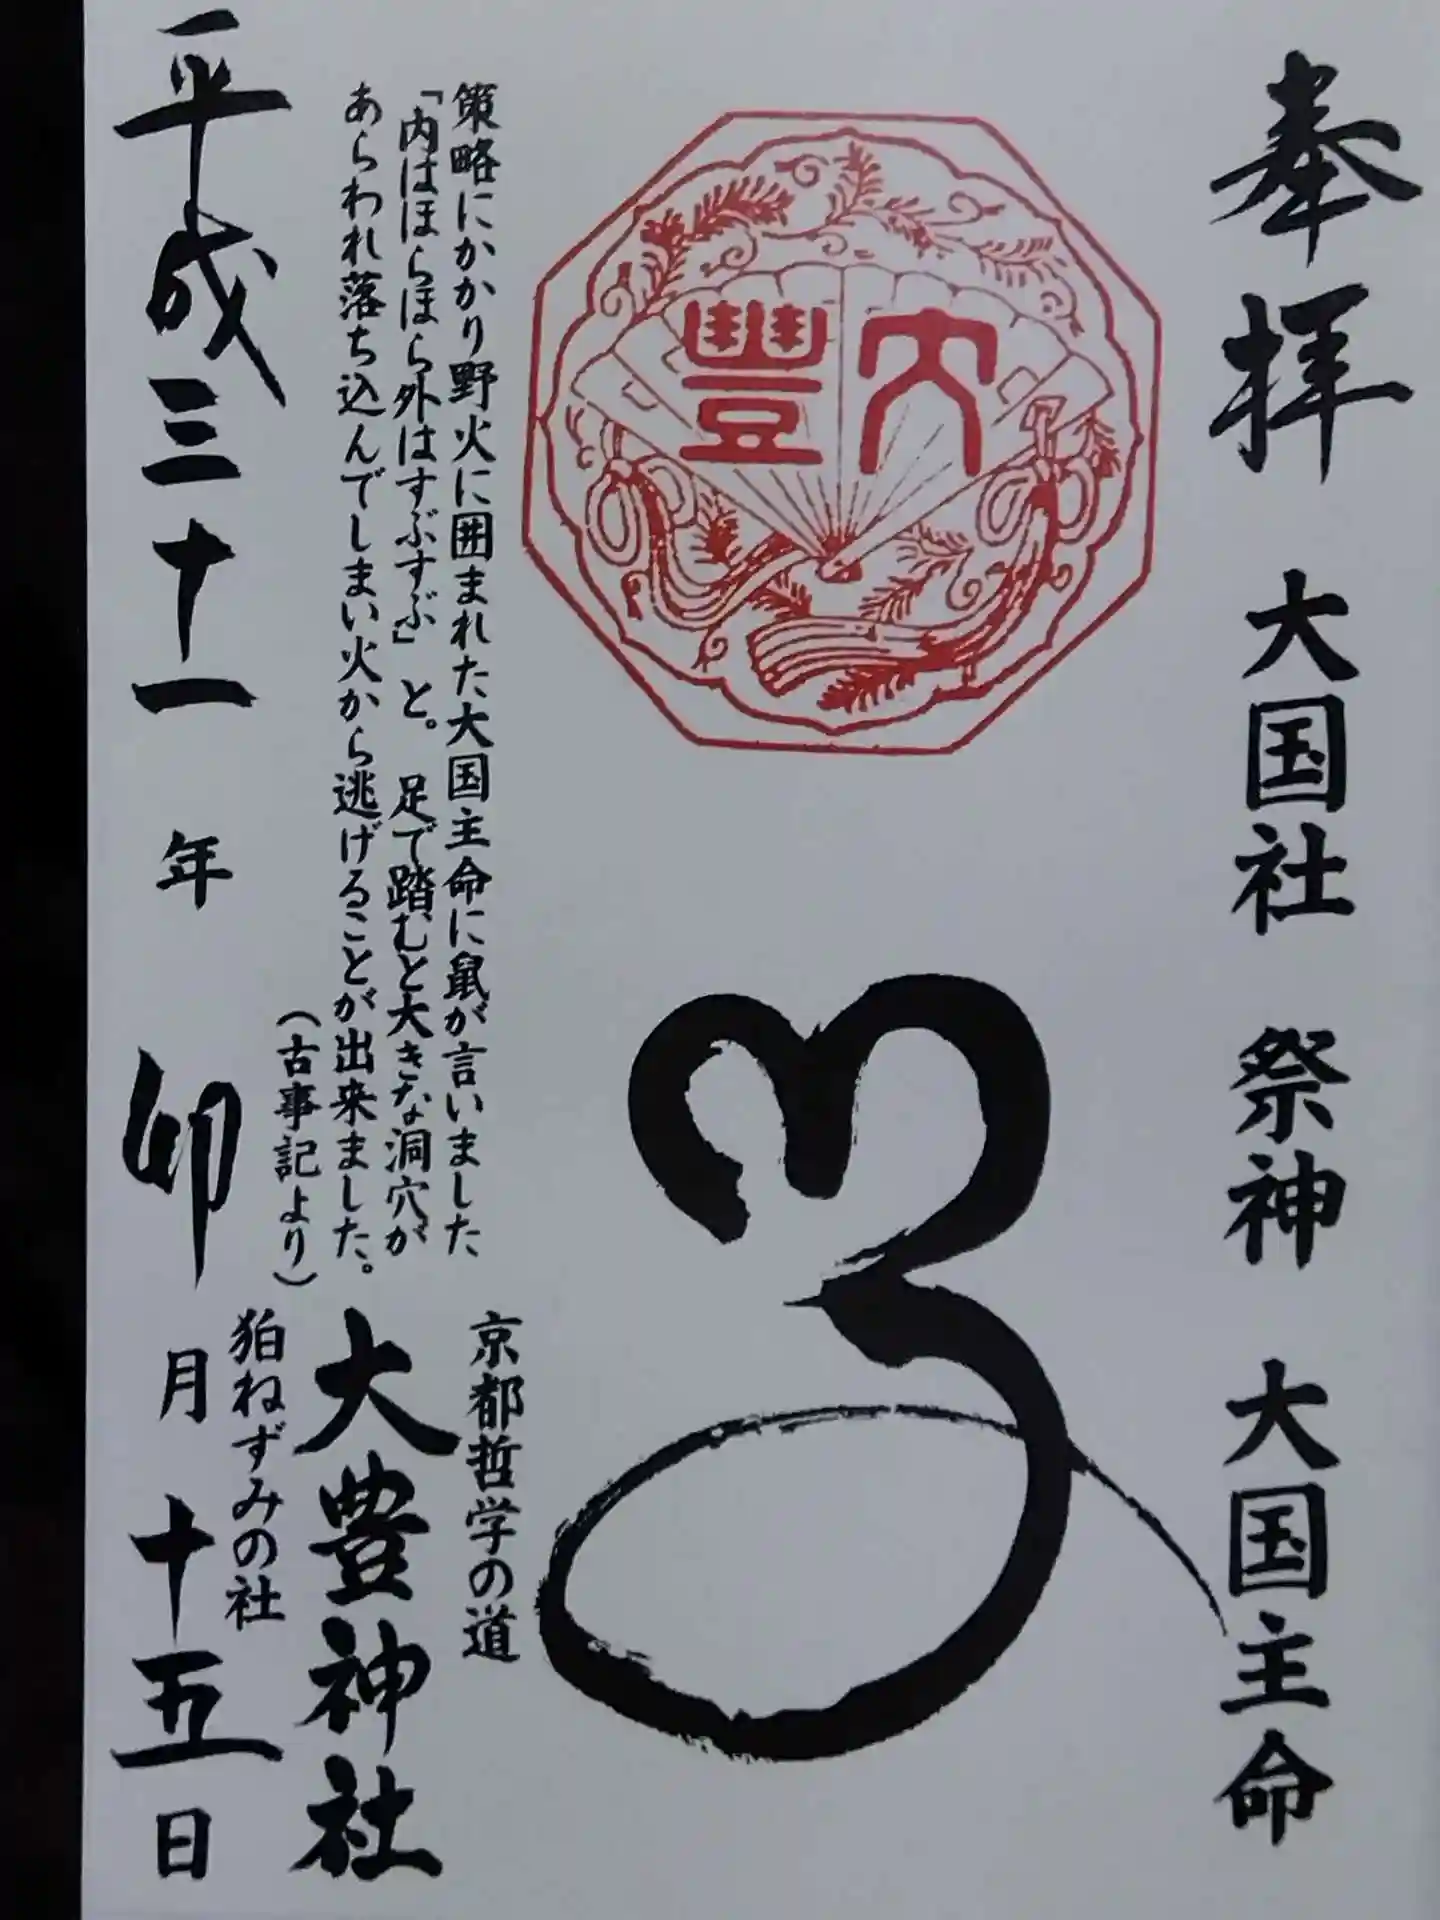 奉拝 大国社 祭神 大国主命
大豐
策略にかかり野火に囲まれた大国主命に鼠が言いました
「内はほらほら外はすぶすぶ」と。 足で踏むと大きな洞穴が
あらわれ落ち込んでしまい火から逃げることが出来ました。
(古事記より)
京都哲学の道
大豊神社
狛ねずみの社
平成三十一年 卯月十五日